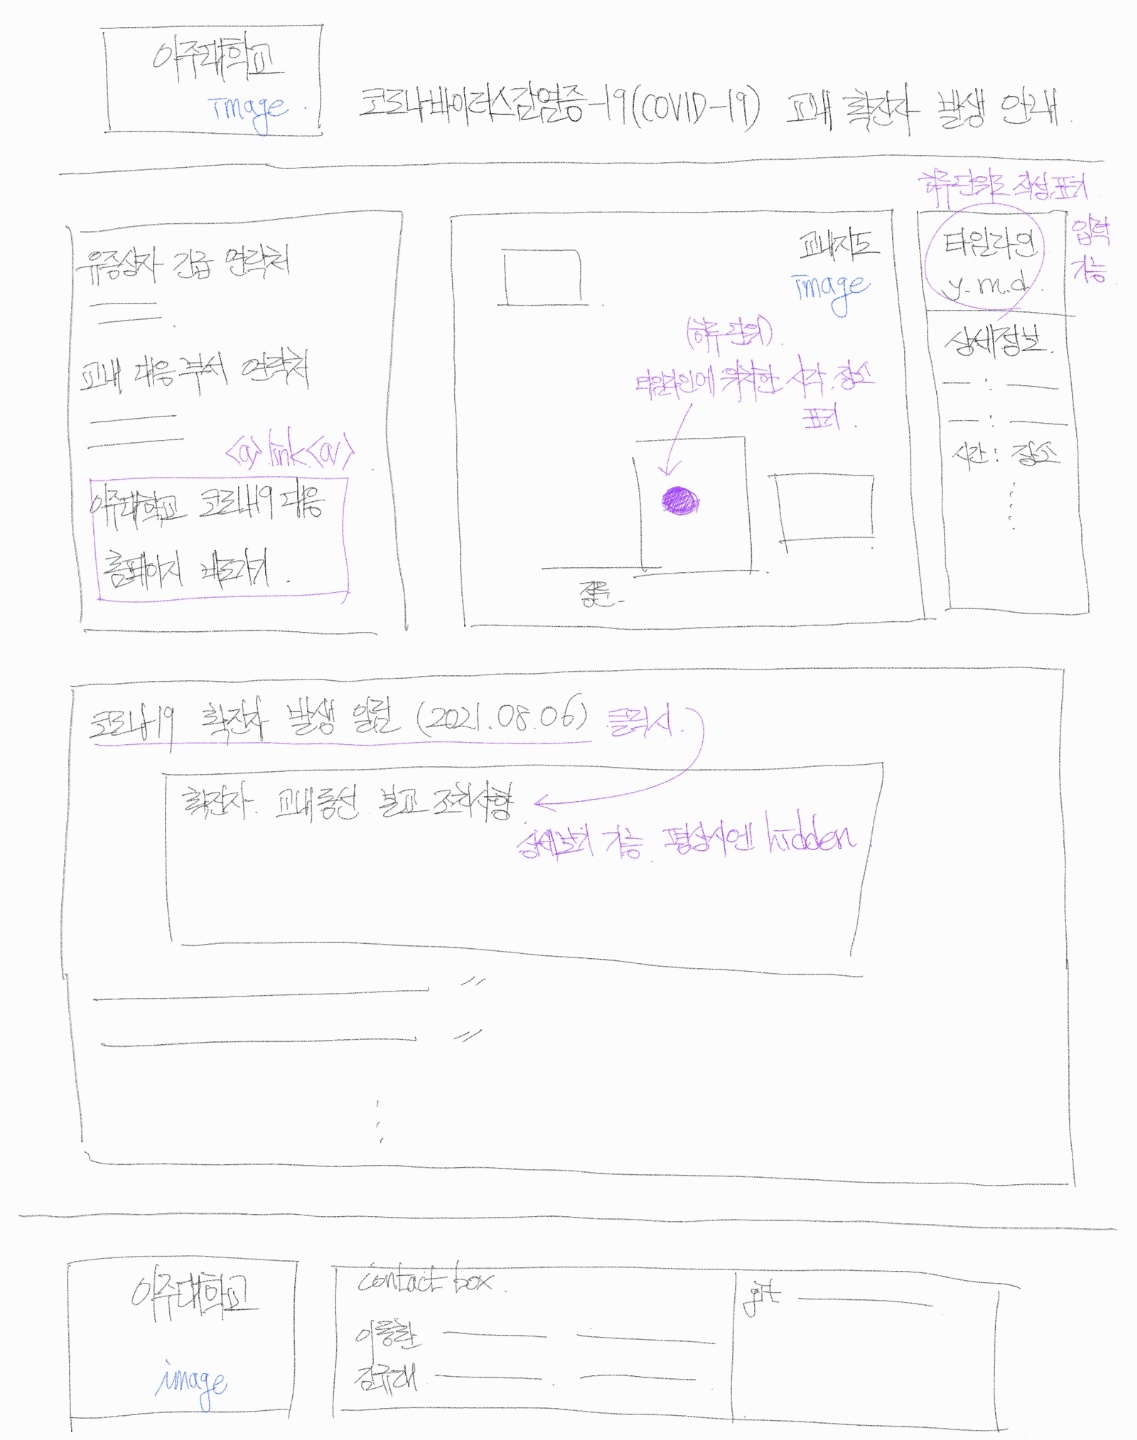 아주대학교
image
코로나바이러스감염증-19(COVID-19) 교내 확진자 발생 안내
하루단위로 작성 표기
입력
가능
유증상자 긴급 연락처
교내 대응 부서 연락처
<a> link <a/>
아주대학교 코로나19 대응
홈페이지 바로가기
교내지도
image
(하루 단위)
타임라인에 위치한 시각, 장소
표기
정문
타임라인
y.m.d.
상세정보
시간 : 장소
코로나19 확진자 발생 알림 (2021.08.06) 클릭시
확진자 교내동선 보고 조치사항
상세보기 가능 평상시엔 hidden
아주대학교
image
contact box
git